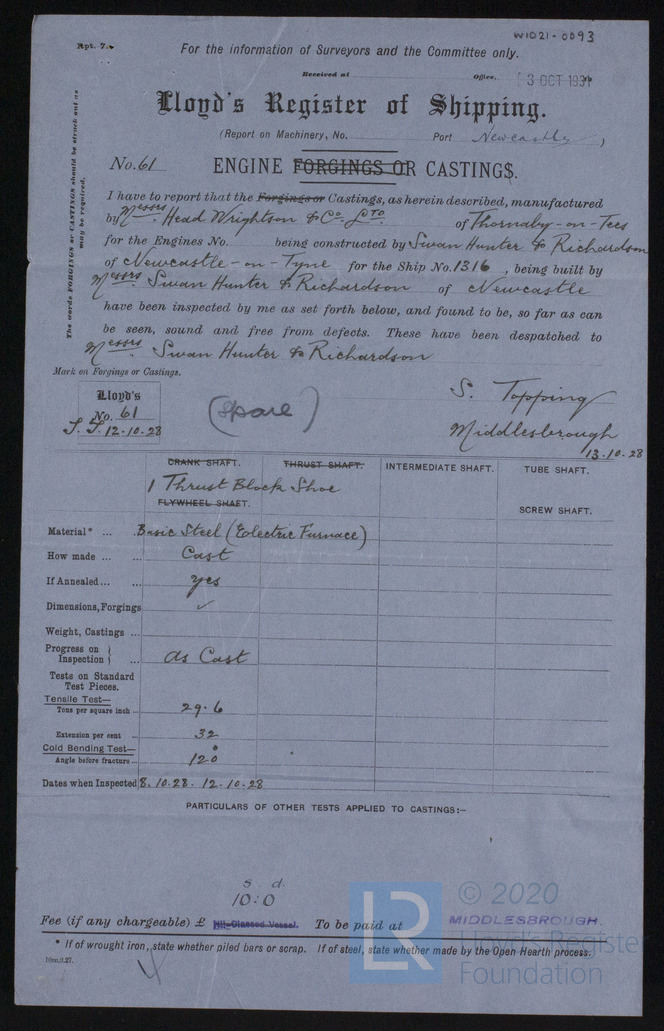 W1021-0093
Rpt. 7.
For the information of Surveyors and the Committee only.
Received at Office, 3 OCT 1931
Lloyd's Register of Shipping.
(Report on Machinery, No. Port Newcastle)
No. 61 ENGINE FORGINGS OR CASTINGS.
The words FORGINGS or CASTINGS should be struck out as
may be required.
I have to report that the Forgings or Castings, as herein described, manufactured
by Messrs. Head Wrightson & Co. LTD of Thornaby-on-Tees
for the Engines No. being constructed by Swan Hunter & Richardson
of Newcastle-on-Tyne for the Ship No. 1316, being built by
Messrs Swan Hunter & Richardson of Newcastle
have been inspected by me as set forth below, and found to be, so far as can
be seen, sound and free from defects. These have been despatched to
Messrs Swan Hunter & Richardson
Mark on Forgings or Castings.
Lloyd's
No. 61
12-10-28
(Spare)
S. Topping
Middlesbrough
13-10-28
CRANK SHAFT. THRUST SHAFT. INTERMEDIATE SHAFT. TUBE SHAFT.
1 Thrust Block Shoe
FLYWHEEL SHAFT. SCREW SHAFT.
Material* ... Basic Steel (Electric Furnace)
How made ... ... Cast
If Annealed ... ... yes
Dimensions, Forgings ✓
Weight, Castings ...
Progress on Inspection } ... As Cast
Tests on Standard
Test Pieces.
Tensile Test—
Tons per square inch ... 29.6
Extension per cent ... 32
Cold Bending Test—
Angle before fracture ... 120°
Dates when Inspected 8.10.28. 12.10.28
PARTICULARS OF OTHER TESTS APPLIED TO CASTINGS:—
s d.
10:0
Fee (if any chargeable) £ Nil-Classed Vessel. To be paid at MIDDLESBROUGH.
* If of wrought iron, state whether piled bars or scrap. If of steel, state whether made by the Open Hearth process.
10m.9.27.
LR
© 2020
Lloyd's Register
Foundation